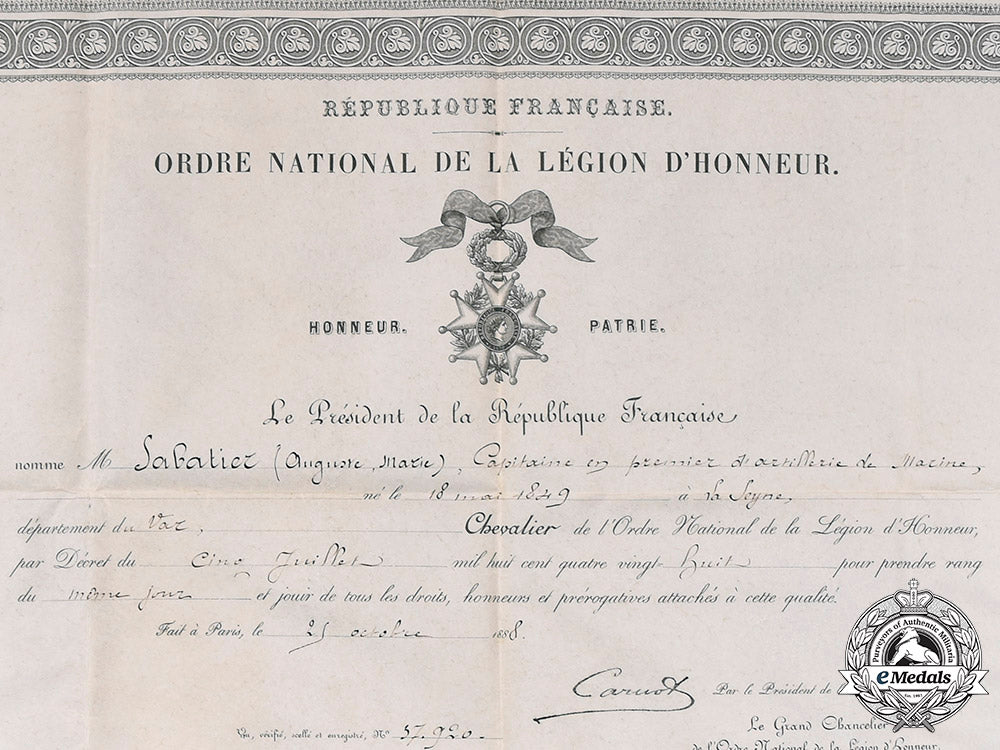 RÉPUBLIQUE FRANÇAISE.
ORDRE NATIONAL DE LA LÉGION D'HONNEUR.
HONNEUR. PATRIE.
Le Président de la République Française
nomme M Sabatier (Auguste, Marie), Capitaine en premier d'artillerie de Marine,
né le 18 mai 1849 à La Seyne,
département du Var, Chevalier de l'Ordre National de la Légion d'Honneur,
par Décret du cinq Juillet mil huit cent quatre vingt- huit pour prendre rang
du même jour et jouir de tous les droits, honneurs et prérogatives attachés à cette qualité.
Fait à Paris, le 25 octobre 1888.
Carnot Par le Président de
Le Grand Chancelier
de l'Ordre National de la Légion d'Honneur,
Vu, vérifié, scellé et enregistré, N° 37.920.
Purveyors of Authentic Militaria
eMedals